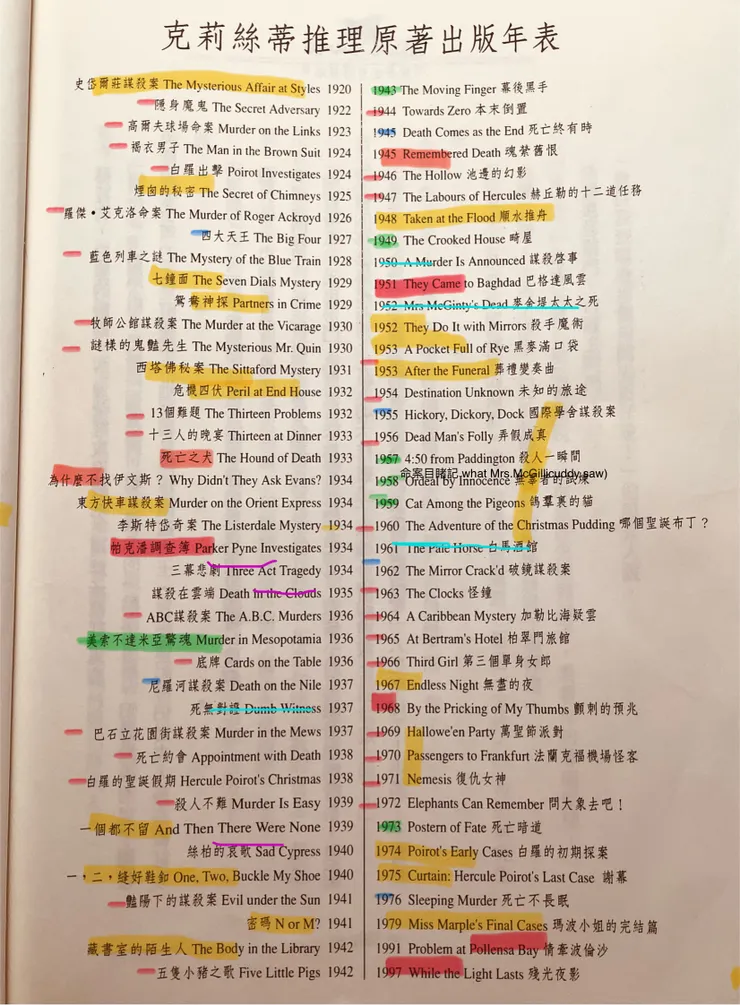 克莉絲蒂推理原著出版年表
史岱爾莊謀殺案 The Mysterious Affair at Styles 1920
隱身魔鬼 The Secret Adversary 1922
高爾夫球場命案 Murder on the Links 1923
褐衣男子 The Man in the Brown Suit 1924
白羅出擊 Poirot Investigates 1924
煙囪的秘密 The Secret of Chimneys 1925
羅傑•艾克洛命案 The Murder of Roger Ackroyd 1926
四大天王 The Big Four 1927
藍色列車之謎 The Mystery of the Blue Train 1928
七鐘面 The Seven Dials Mystery 1929
鴛鴦神探 Partners in Crime 1929
牧師公館謀殺案 The Murder at the Vicarage 1930
謎樣的鬼豔先生 The Mysterious Mr. Quin 1930
西塔佛秘案 The Sittaford Mystery 1931
危機四伏 Peril at End House 1932
13個難題 The Thirteen Problems 1932
十三人的晚宴 Thirteen at Dinner 1933
死亡之犬 The Hound of Death 1933
為什麼不找伊文斯？ Why Didn't They Ask Evans? 1934
東方快車謀殺案 Murder on the Orient Express 1934
李斯特岱奇案 The Listerdale Mystery 1934
帕克潘調查簿 Parker Pyne Investigates 1934
三幕悲劇 Three Act Tragedy 1934
謀殺在雲端 Death in the Clouds 1935
ABC謀殺案 The A.B.C. Murders 1936
美索不達米亞驚魂 Murder in Mesopotamia 1936
底牌 Cards on the Table 1936
尼羅河謀殺案 Death on the Nile 1937
死無對證 Dumb Witness 1937
巴石立花園街謀殺案 Murder in the Mews 1937
死亡約會 Appointment with Death 1938
白羅的聖誕假期 Hercule Poirot's Christmas 1938
殺人不難 Murder Is Easy 1939
一個都不留 And Then There Were None 1939
絲柏的哀歌 Sad Cypress 1940
一，二，縫好鞋釦 One, Two, Buckle My Shoe 1940
豔陽下的謀殺案 Evil under the Sun 1941
密碼 N or M? 1941
藏書室的陌生人 The Body in the Library 1942
五隻小豬之歌 Five Little Pigs 1942
1943 The Moving Finger 幕後黑手
1944 Towards Zero 本末倒置
1945 Death Comes as the End 死亡終有時
1945 Remembered Death 魂縈舊恨
1946 The Hollow 池邊的幻影
1947 The Labours of Hercules 赫丘勒的十二道任務
1948 Taken at the Flood 順水推舟
1949 The Crooked House 畸屋
1950 A Murder Is Announced 謀殺啓事
1951 They Came to Baghdad 巴格達風雲
1952 Mrs McGinty's Dead 麥金堤太太之死
1952 They Do It with Mirrors 殺手魔術
1953 A Pocket Full of Rye 黑麥滿口袋
1953 After the Funeral 葬禮變奏曲
1954 Destination Unknown 未知的旅途
1955 Hickory, Dickory, Dock 國際學舍謀殺案
1956 Dead Man's Folly 弄假成真
1957 4:50 from Paddington 殺人一瞬間
命案目睹記,what Mrs.McGillicuddy saw)
1958 Ordeal by Innocence 無辜者的試煉
1959 Cat Among the Pigeons 鴿羣裏的貓
1960 The Adventure of the Christmas Pudding 哪個聖誕布丁？
1961 The Pale Horse 白馬酒館
1962 The Mirror Crack'd 破鏡謀殺案
1963 The Clocks 怪鐘
1964 A Caribbean Mystery 加勒比海疑雲
1965 At Bertram's Hotel 柏翠門旅館
1966 Third Girl 第三個單身女郎
1967 Endless Night 無盡的夜
1968 By the Pricking of My Thumbs 顫刺的預兆
1969 Hallowe'en Party 萬聖節派對
1970 Passengers to Frankfurt 法蘭克福機場怪客
1971 Nemesis 復仇女神
1972 Elephants Can Remember 問大象去吧！
1973 Postern of Fate 死亡暗道
1974 Poirot's Early Cases 白羅的初期探案
1975 Curtain: Hercule Poirot's Last Case 謝幕
1976 Sleeping Murder 死亡不長眠
1979 Miss Marple's Final Cases 瑪波小姐的完結篇
1991 Problem at Pollensa Bay 情牽波倫沙
1997 While the Light Lasts 殘光夜影